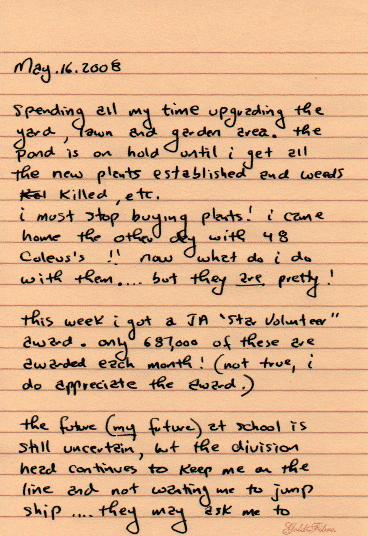 May.16.2008
spending all my time upgrading the
yard, lawn and garden area. the
pond is on hold until i get all
the new plants established and weeds
killed, etc.
i must stop buying plants! i came
home the other day with 48
Coleus's !! now what do i do
with them.... but they are pretty!
this week i got a JA "Star Volunteer"
award. only 687,000 of these are
awarded each month! (not true, i
do appreciate the award.)
the future (my future) at school is
still uncertain, but the division
head continues to keep me on the
line and not wanting me to jump
ship .... they may ask me to